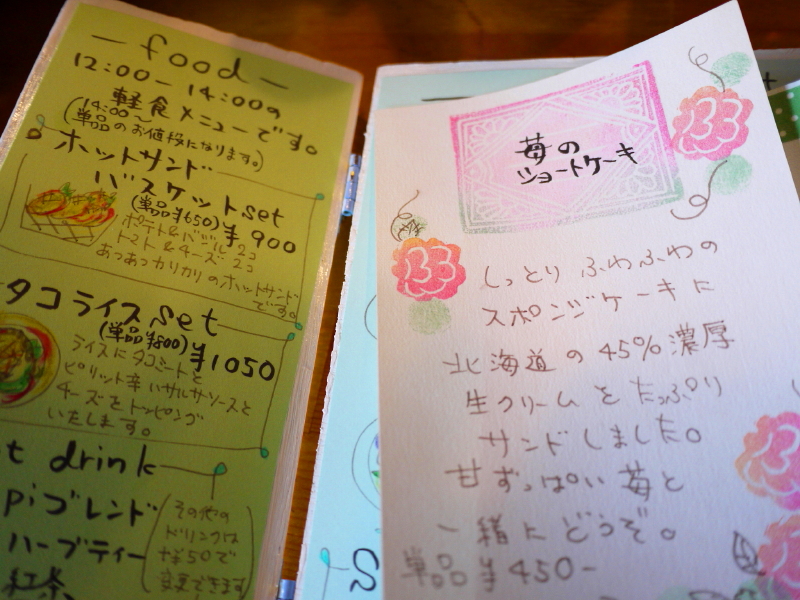 food
12:00-14:00の
軽食メニューです。
(14:00〜
単品のお値段になります。)
ホットサンド
バスケットset
(単品¥650)¥900
ポテト&バジル 2コ
トマト&チーズ 2コ
あつあつカリカリのホットサンド
です。
タコライスset
(単品¥800)¥1050
ライスにタコミートと
ピリット辛いサルサソースと
チーズをトッピング
いたします。
t drink
piブレンド
ハーブティー
紅茶
(その他の
ドリンクは
+¥50で
変更できます
苺の
ショートケーキ
しっとり ふわふわの
スポンジケーキに
北海道の45%濃厚
生クリームをたっぷり
サンドしました。
甘ずっぱい苺と
一緒にどうぞ。
単品¥450-